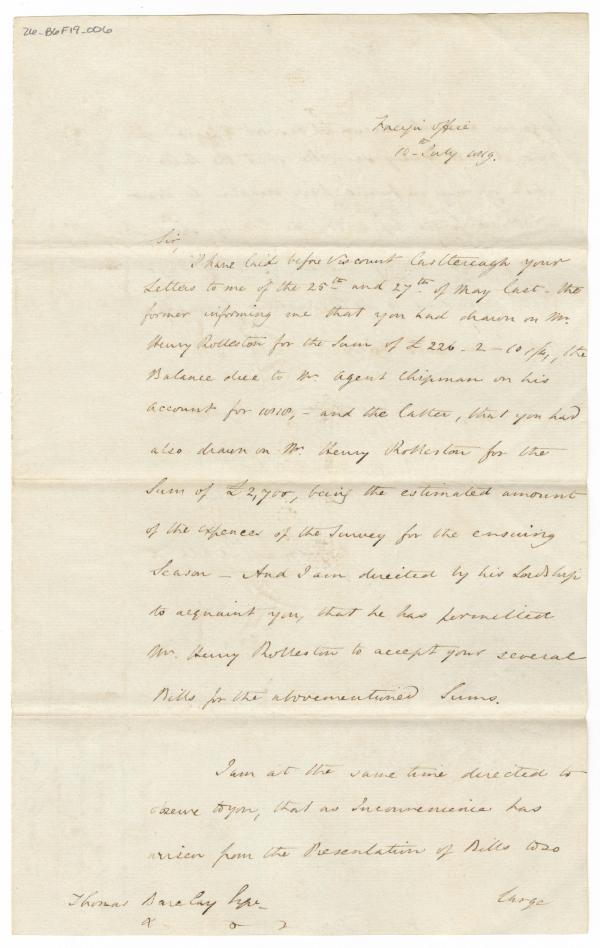 26-B6F19-006
Foreign Office
10th July 1819.
Sir,
I have laid before Viscount Castlereagh your
Letters to me of the 25th and 27th of May last - the
former informing me that you had drawn on Mr.
Henry Rolleston for the Sum of £ 226 - 2 - 10, the
Balance due to Mr. Agent Chipman on his
Account for 1818, - and the latter, that you had
also drawn on Mr. Henry Rolleston for the
Sum of £2,700, being the estimated amount
of the expences of the Survey for the ensuing
Season - And I am directed by his Lordship
to acquaint you, that he has permitted
Mr. Henry Rolleston to accept your several
Bills for the abovementioned Sums.
I am at the same time directed to
observe to you, that as Inconvenience has
arisen from the Presentation of Bills to so
large
Thomas Barclay Esqre